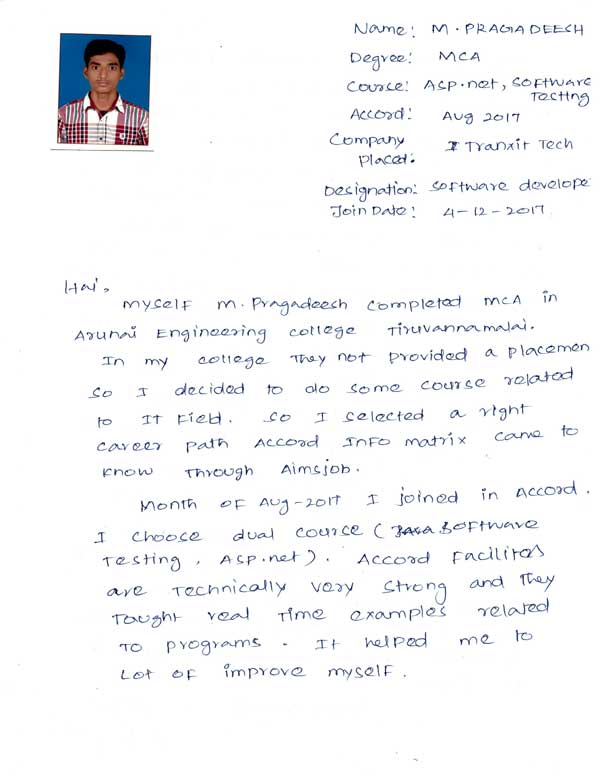 Name: M. PRAGADEESH
Degree: MCA
Course: ASP.net, Software
Testing
Accord: Aug 2017
Company
Placed: I Tranxit Tech
Designation: Software develope
Join Date: 4-12-2017
Hai,
Myself M. Pragadeesh completed MCA in
Arunai Engineering college Tiruvannamalai.
In my college They not provided a placemen
So I decided to do some course related
to IT Field. So I selected a right
career path Accord Info matrix came to
know through Aimsjob.
Month of Aug-2017 I joined in Accord.
I choose dual course (Software
Testing, ASP.net). Accord Facilites
are Technically very strong and They
Tought real Time examples related
To programs. It helped me to
Lot of improve myself.